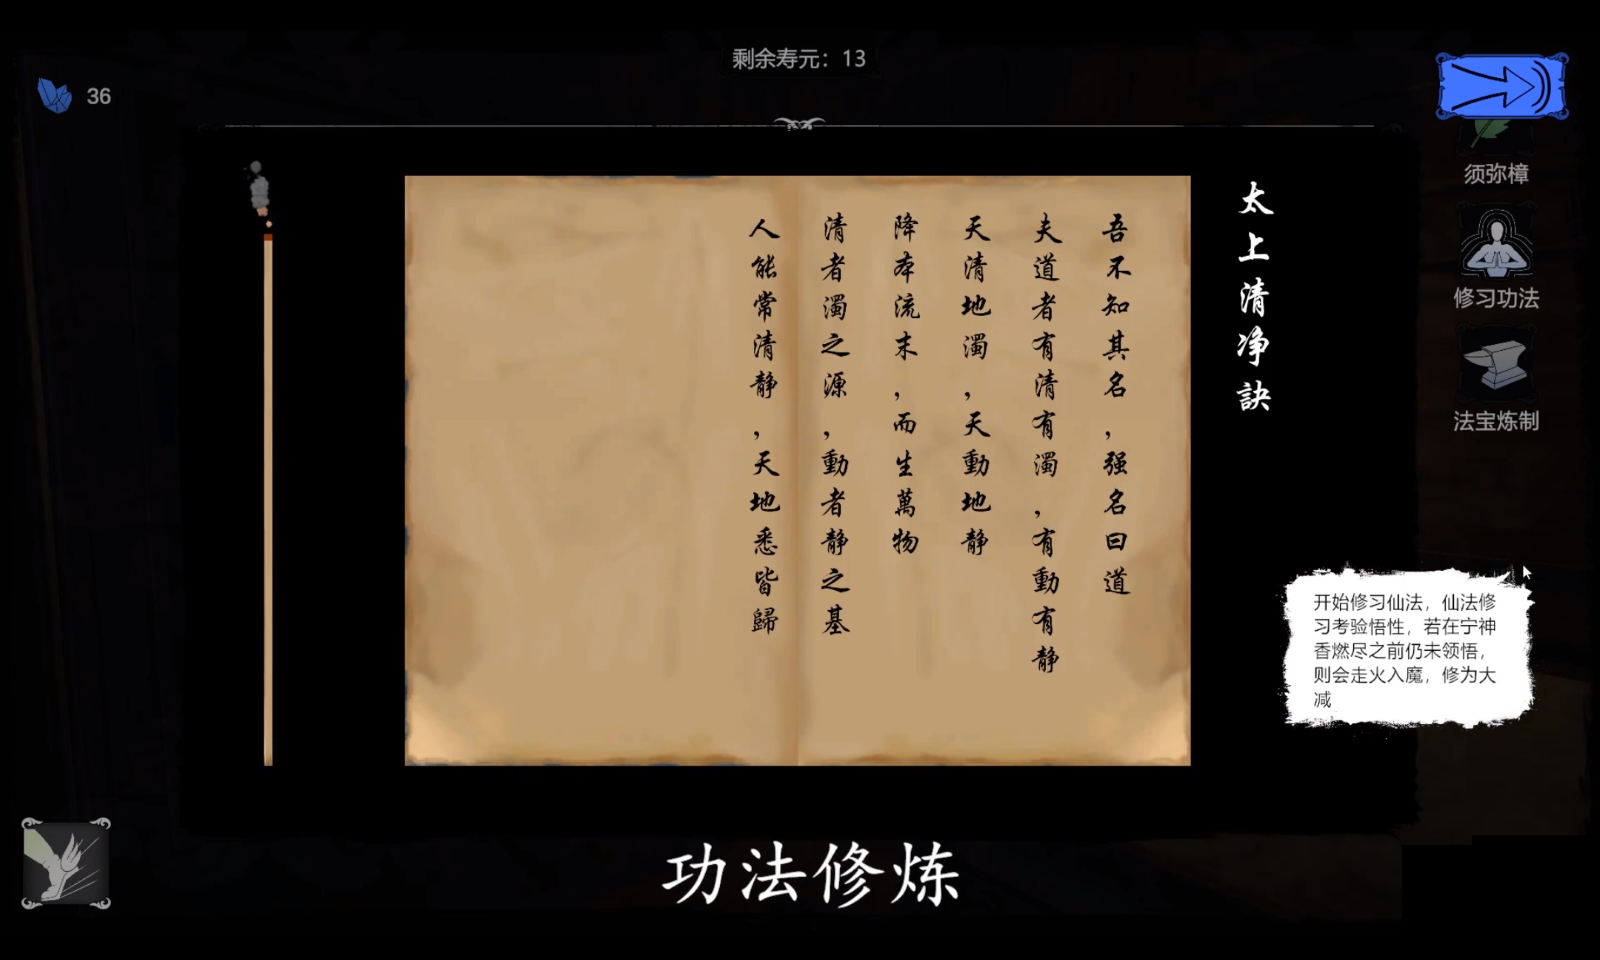 剩余寿元：13
36
太上清净訣
吾不知其名，强名曰道
夫道者有清有濁，有動有静
天清地濁，天動地静
降本流末，而生萬物
清者濁之源，動者静之基
人能常清静，天地悉皆歸
须弥樟
修习功法
法宝炼制
开始修习仙法，仙法修
习考验悟性，若在宁神
香燃尽之前仍未领悟，
则会走火入魔，修为大
减
功法修炼